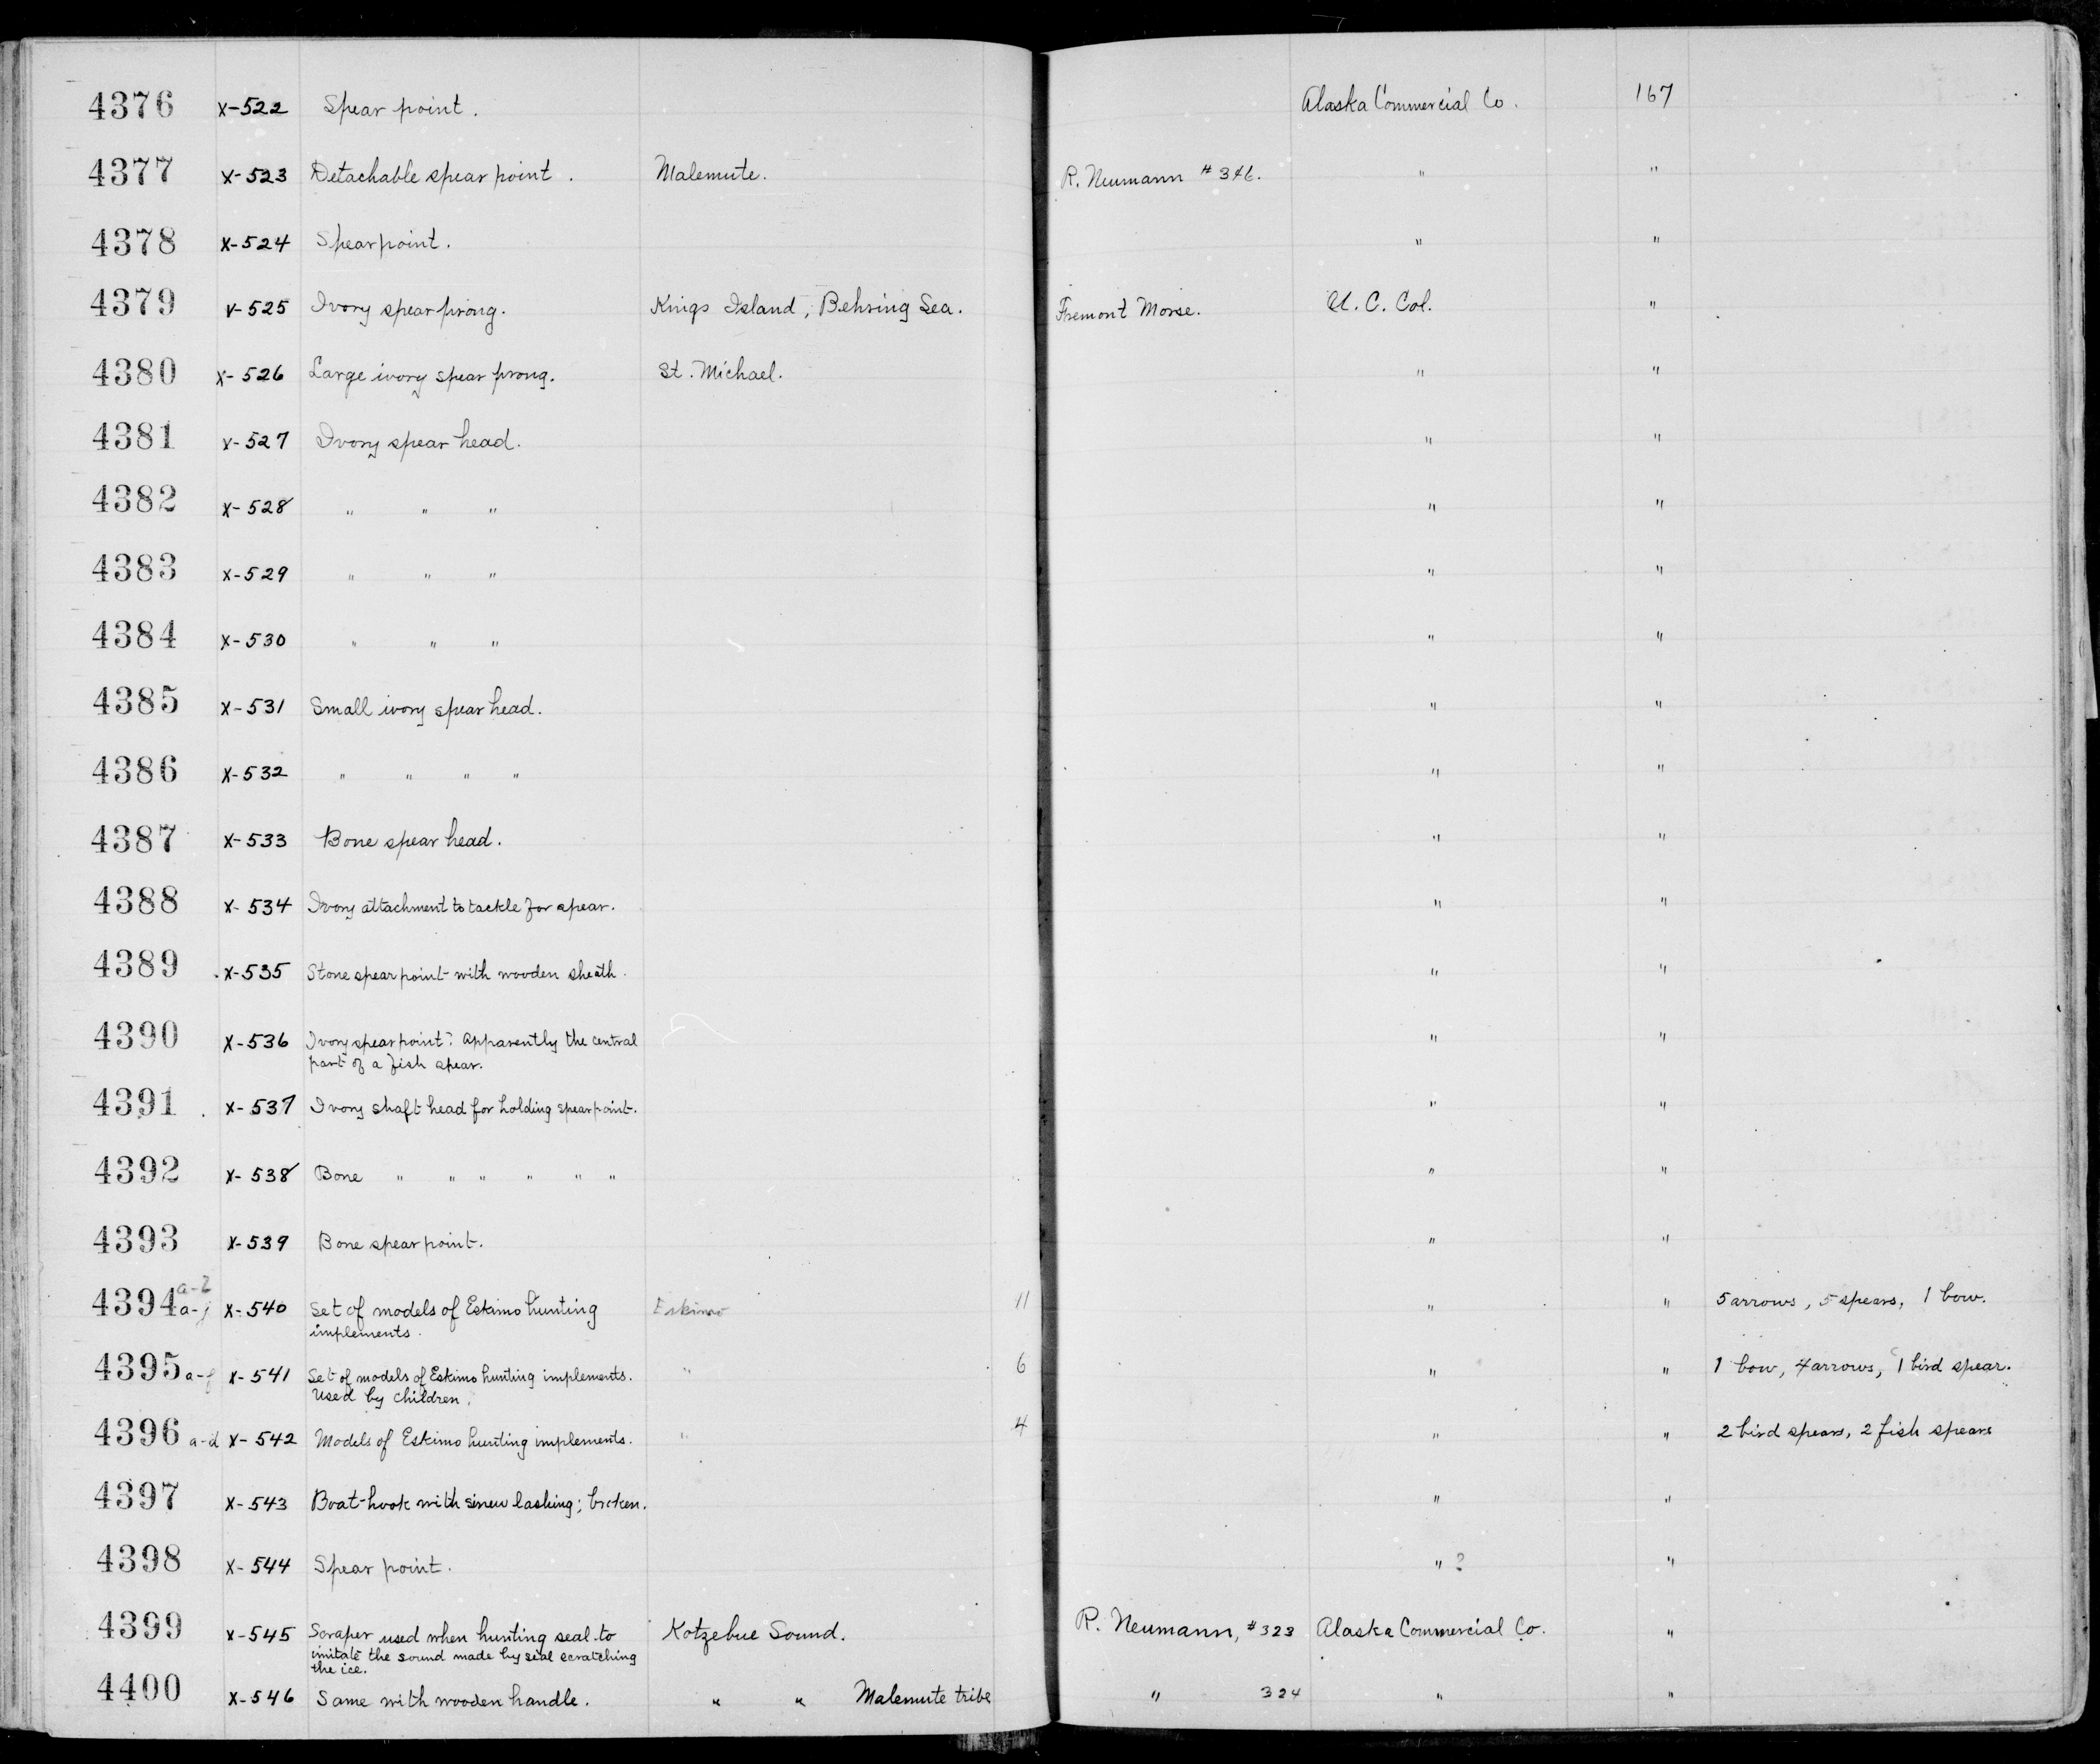 4376 X-522 Spear point. Alaska Commercial Co. 167
4377 X-523 Detachable spear point. Malemute. R. Neumann #346. " "
4378 X-524 Spear point. " "
4379 X-525 Ivory spear prong. Kings Island, Behring Sea. Fremont Morse. U. C. Col. "
4380 X-526 Large ivory spear prong. St. Michael. " "
4381 X-527 Ivory spear head. " "
4382 X-528 " " " " "
4383 X-529 " " " " "
4384 X-530 " " " " "
4385 X-531 Small ivory spear head. " "
4386 X-532 " " " " " "
4387 X-533 Bone spear head. " "
4388 X-534 Ivory attachment to tackle for spear. " "
4389 X-535 Stone spear point with wooden sheath. " "
4390 X-536 Ivory spear point? Apparently the central " "
part of a fish spear.
4391 X-537 Ivory shaft head for holding spear point. " "
4392 X-538 Bone " " " " " " " "
4393 X-539 Bone spear point. " "
4394 a-j X-540 Set of models of Eskimo hunting Eskimo 11 " " 5 arrows, 5 spears, 1 bow.
implements.
4395 a-f X-541 Set of models of Eskimo hunting implements. " 6 " " 1 bow, 4 arrows, 1 bird spear.
Used by children.
4396 a-d X-542 Models of Eskimo hunting implements. " 4 " " 2 bird spears, 2 fish spears
4397 X-543 Boat-hook with sinew lashing; broken. " "
4398 X-544 Spear point. " ? "
4399 X-545 Scraper used when hunting seal to Kotzebue Sound. R. Neumann, #323 Alaska Commercial Co. "
imitate the sound made by seal scratching
the ice.
4400 X-546 Same with wooden handle. " " Malemute tribe " 324 " "